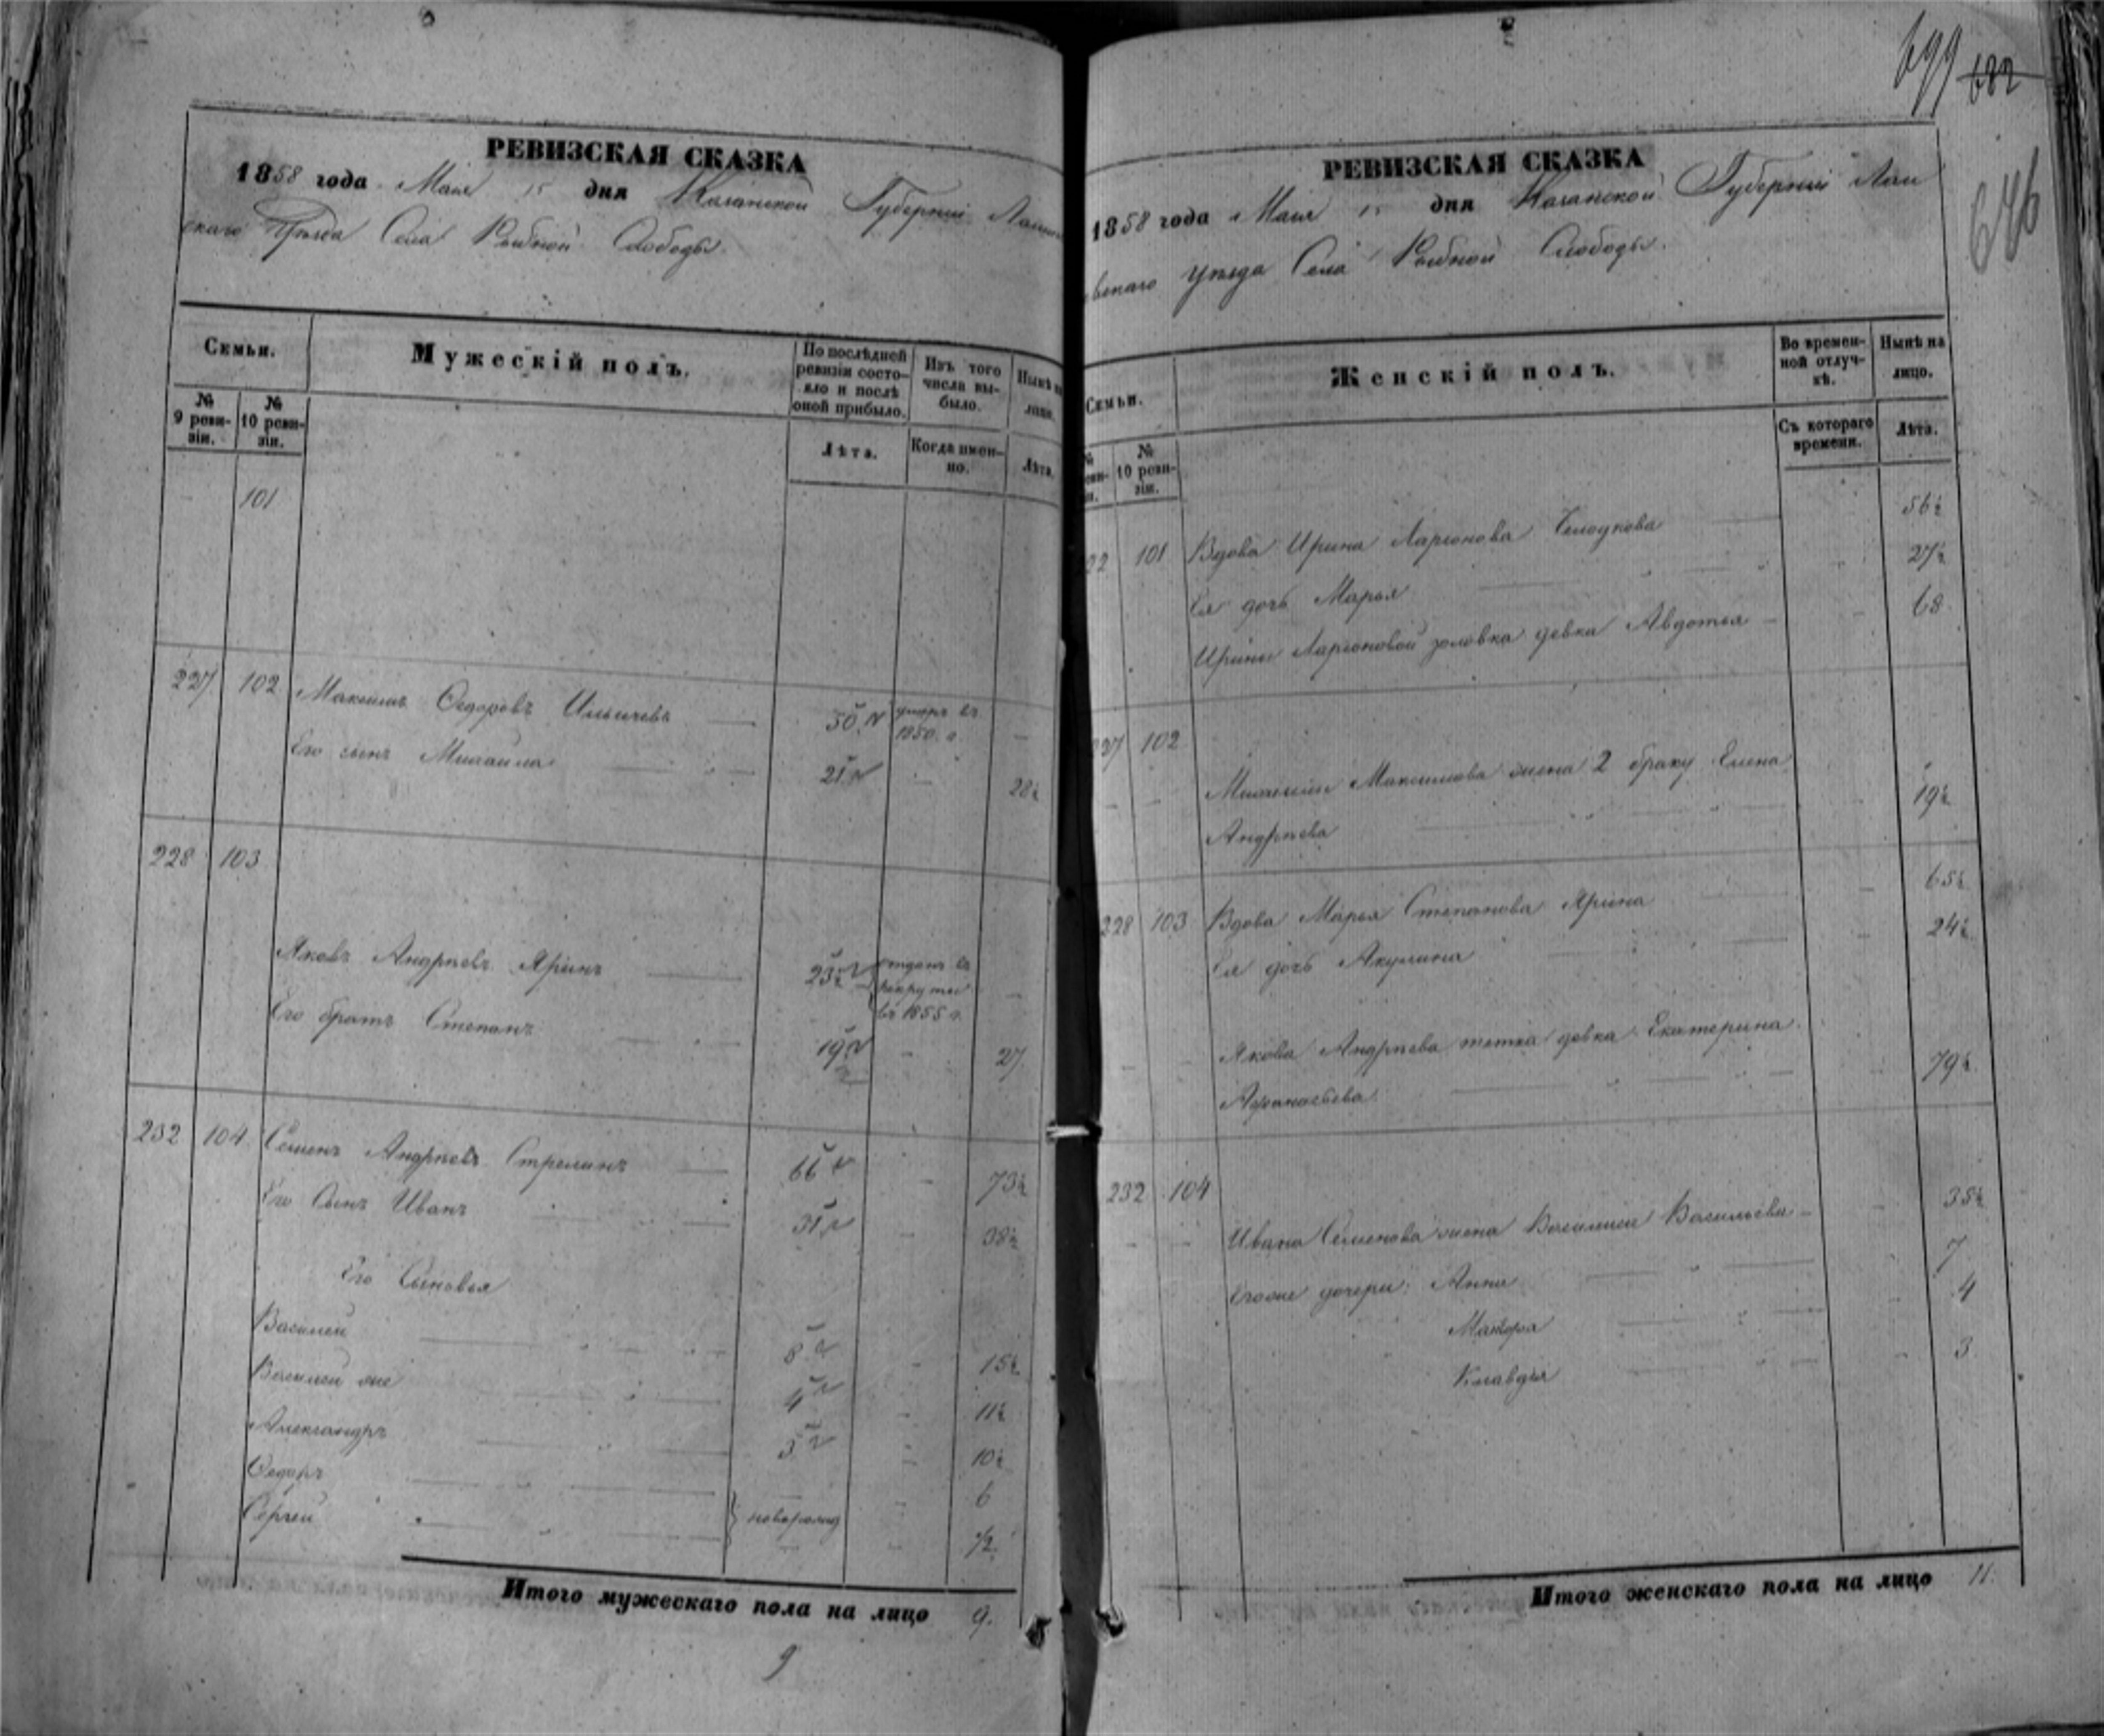 РЕВИЗСКАЯ СКАЗКА
1858 года Маія 15 дня Казанской Губерніи Лаише
скаго Уѣзда Села Рыбной Слободы.
Семьи.
Мужескій полъ.
По послѣдней ревизіи состояло и послѣ оной прибыло.
Изъ того числа выбыло.
Нынѣ на лицо.
№ 9 ревизіи.
№ 10 ревизіи.
Лѣта.
Когда именно.
Лѣта.
101
227 102 Максимъ Ѳедоровъ 50 умеръ въ 1850. г. —
Его сынъ Михаила 21 28½
228 103
Яковъ Андреевъ Яринъ 23½ отданъ въ рекруты въ 1855 г. —
Его братъ Степанъ 19½ 27
232 104 Семенъ Андреевъ Стрелинъ 66 73½
Его Сынъ Иванъ 31 38½
Его Сыновья
Василий 8 15½
Василий же 4 11½
Александръ 3 10½
Ѳедоръ 6
Сергей новорожд ½
Итого мужескаго пола на лицо 9.
9
699 682
646
РЕВИЗСКАЯ СКАЗКА
1858 года Маія 15 дня Казанской Губерніи Лаи
шевскаго Уѣзда Села Рыбной Слободы.
Семьи.
Женскій полъ.
Во временной отлучкѣ.
Нынѣ на лицо.
№ ревизіи.
№ 10 ревизіи.
Съ котораго времени.
Лѣта.
22 101 Вдова Ирина Ларионова 56½
Ея дочь Марья 27½
Ирины Ларионовой золовка девка Авдотья 68
227 102
Михайлы Максимова жена 2 браку Елена
Андреева 19½
228 103 Вдова Марья Степанова Ярина 65½
Ея дочь Акулина 24½
Якова Андреева тетка девка Екатерина
Афанасьева 79½
232 104
Ивана Семенова жена Василиса Васильева 38½
Егоже дочери: Анна 7
Матрена 4
Клавдия 3
Итого женскаго пола на лицо 11.